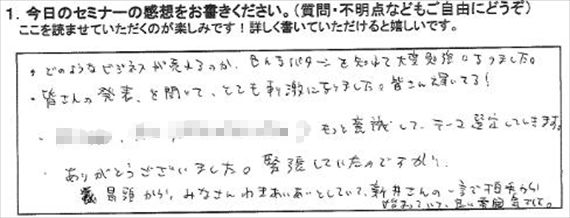 1. 今日のセミナーの感想をお書きください。(質問・不明点などもご自由にどうぞ)
ここを読ませていただくのが楽しみです!詳しく書いていただけると嬉しいです。
・どのようなビジネスが売れるのか、色んなパターンを知れて大変勉強になりました。
・皆さんの発表を聞いて、とても刺激になりました。皆さん凄いです!
・ もっと意識して、テーマ選定していきます。
・ありがとうございました。緊張していたのですが、
冒頭から、みなさんわきあいあいとしていて、新井さんの一言で
始まっていて、良い雰囲気でした。